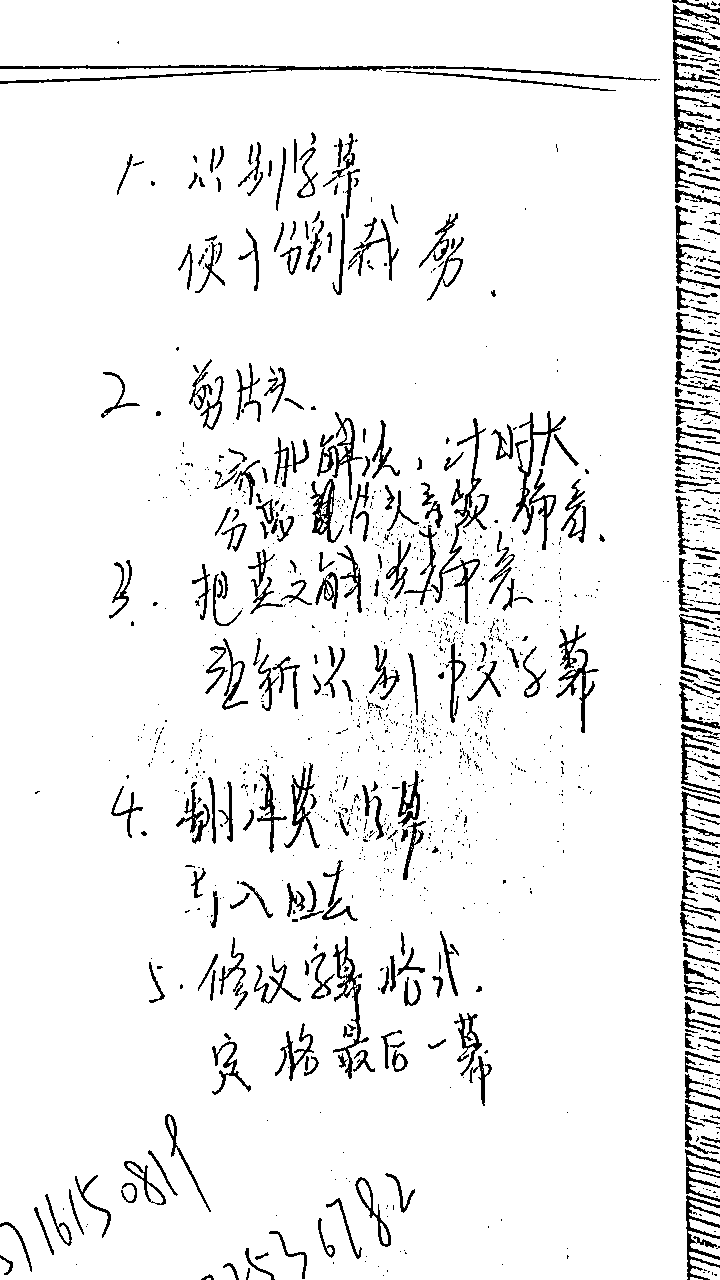 1. 识别字幕
便于分割裁剪.
2. 剪片头.
添加解说、计时长.
分离 片头音频. 静音.
3. 把英文解说静音
重新识别中文字幕
4. 翻译英 幕.
导入回去
5. 修改字幕格式.
定格最后一幕
716150819
2536782